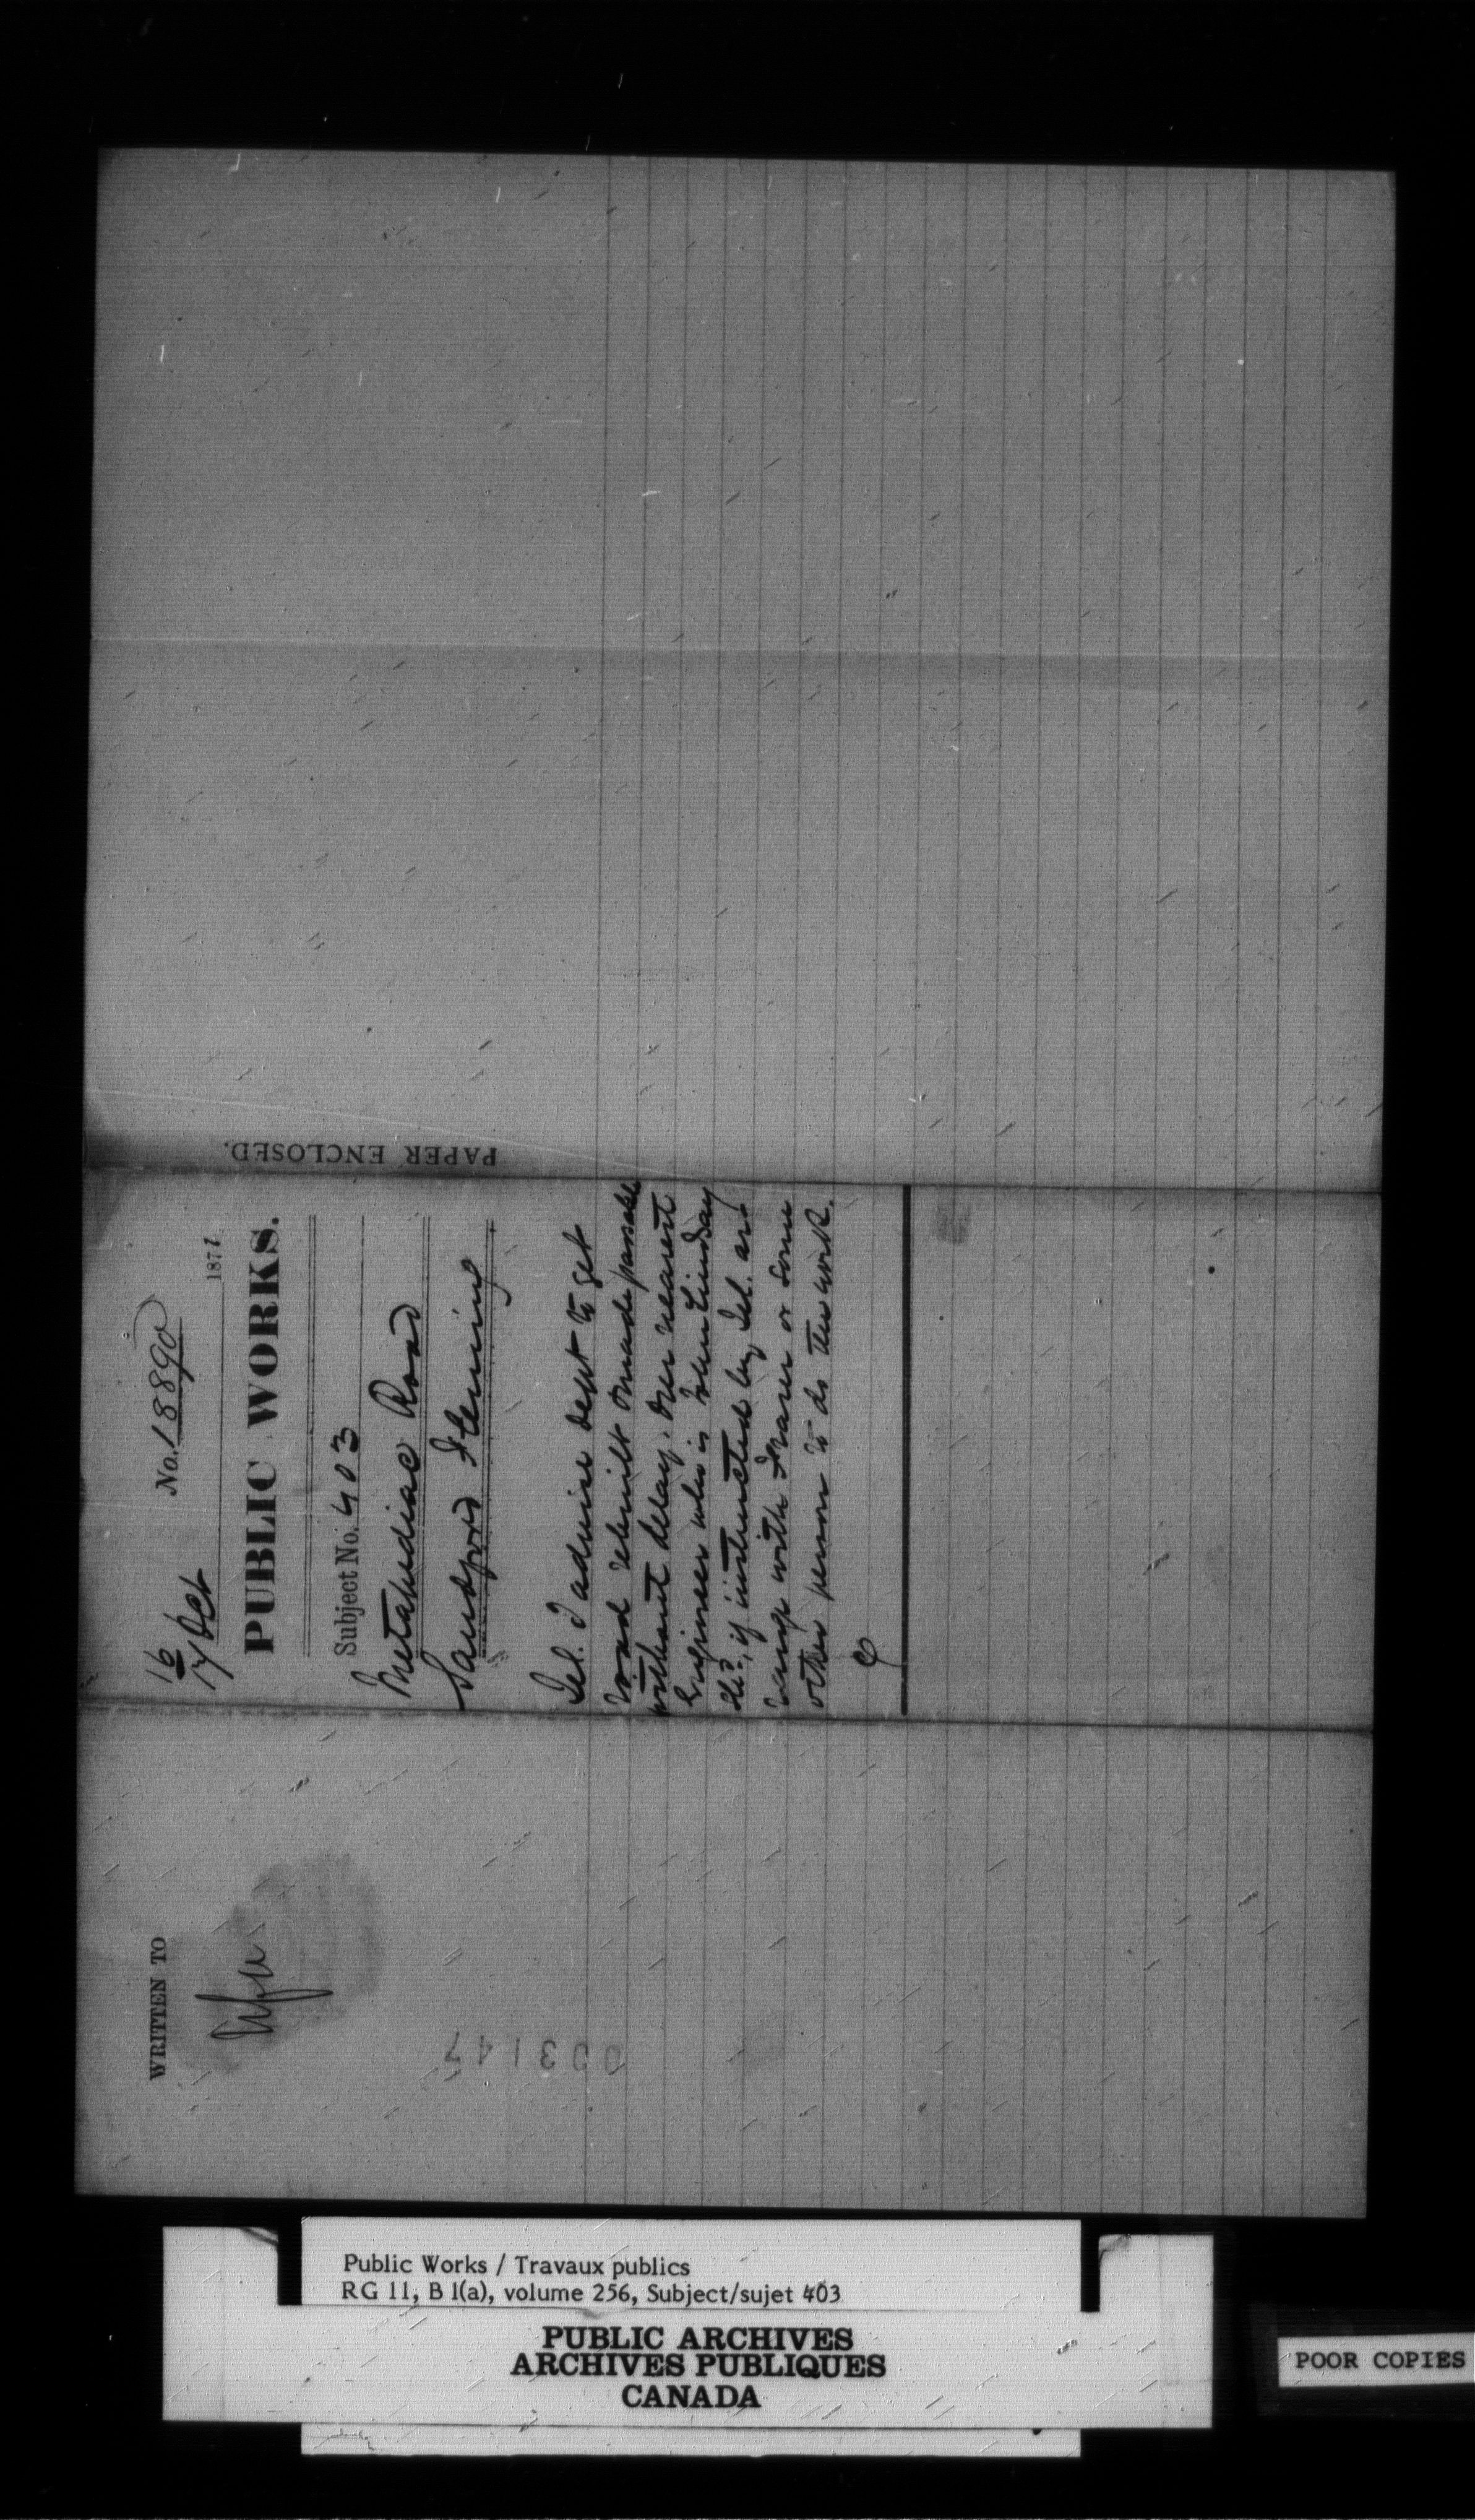 16
17 Oct
No. 18890
1871
PUBLIC WORKS.
Subject No. 403
Metapediac Road
Sandford Fleming
Tel. I advise Dept to get
road rebuilt & made passable
without delay. Our nearest
Engineer who is John Lindsay
if instructed by Tel. ar-
range with Fraser or some
other person to do the work.
PAPER ENCLOSED.
WRITTEN TO
003147
Public Works / Travaux publics
RG 11, B 1(a), volume 256, Subject/sujet 403
PUBLIC ARCHIVES
ARCHIVES PUBLIQUES
CANADA
POOR COPIES